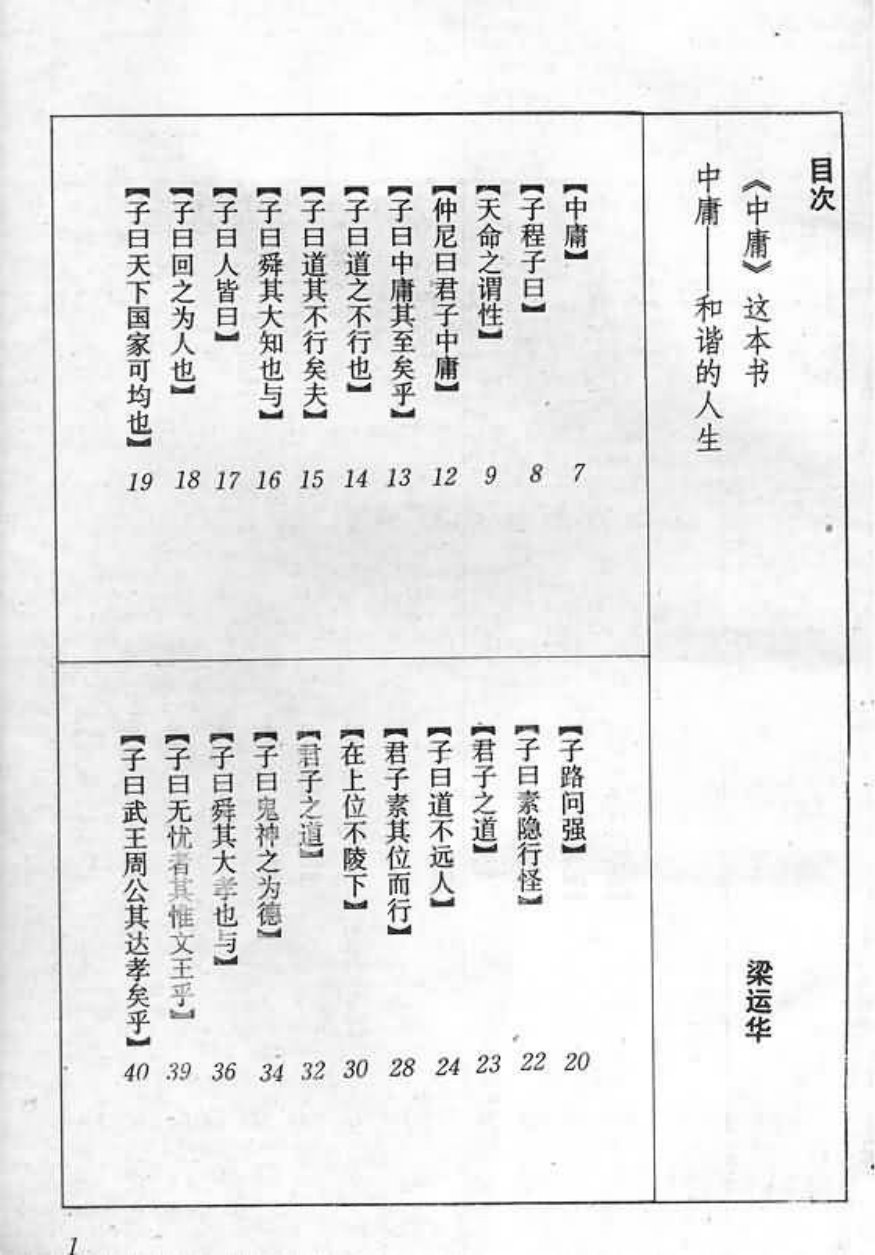 目次
《中庸》这本书
梁运华
中庸——和谐的人生
【中庸】 7
【子程子曰】 8
【天命之谓性】 9
【仲尼曰君子中庸】 12
【子曰中庸其至矣乎】 13
【子曰道之不行也】 14
【子曰道其不行矣夫】 15
【子曰舜其大知也与】 16
【子曰人皆曰】 17
【子曰回之为人也】 18
【子曰天下国家可均也】 19
【子路问强】 20
【子曰素隐行怪】 22
【君子之道】 23
【子曰道不远人】 24
【君子素其位而行】 28
【在上位不陵下】 30
【君子之道】 32
【子曰鬼神之为德】 34
【子曰舜其大孝也与】 36
【子曰无忧者其惟文王乎】 39
【子曰武王周公其达孝矣乎】 40
1